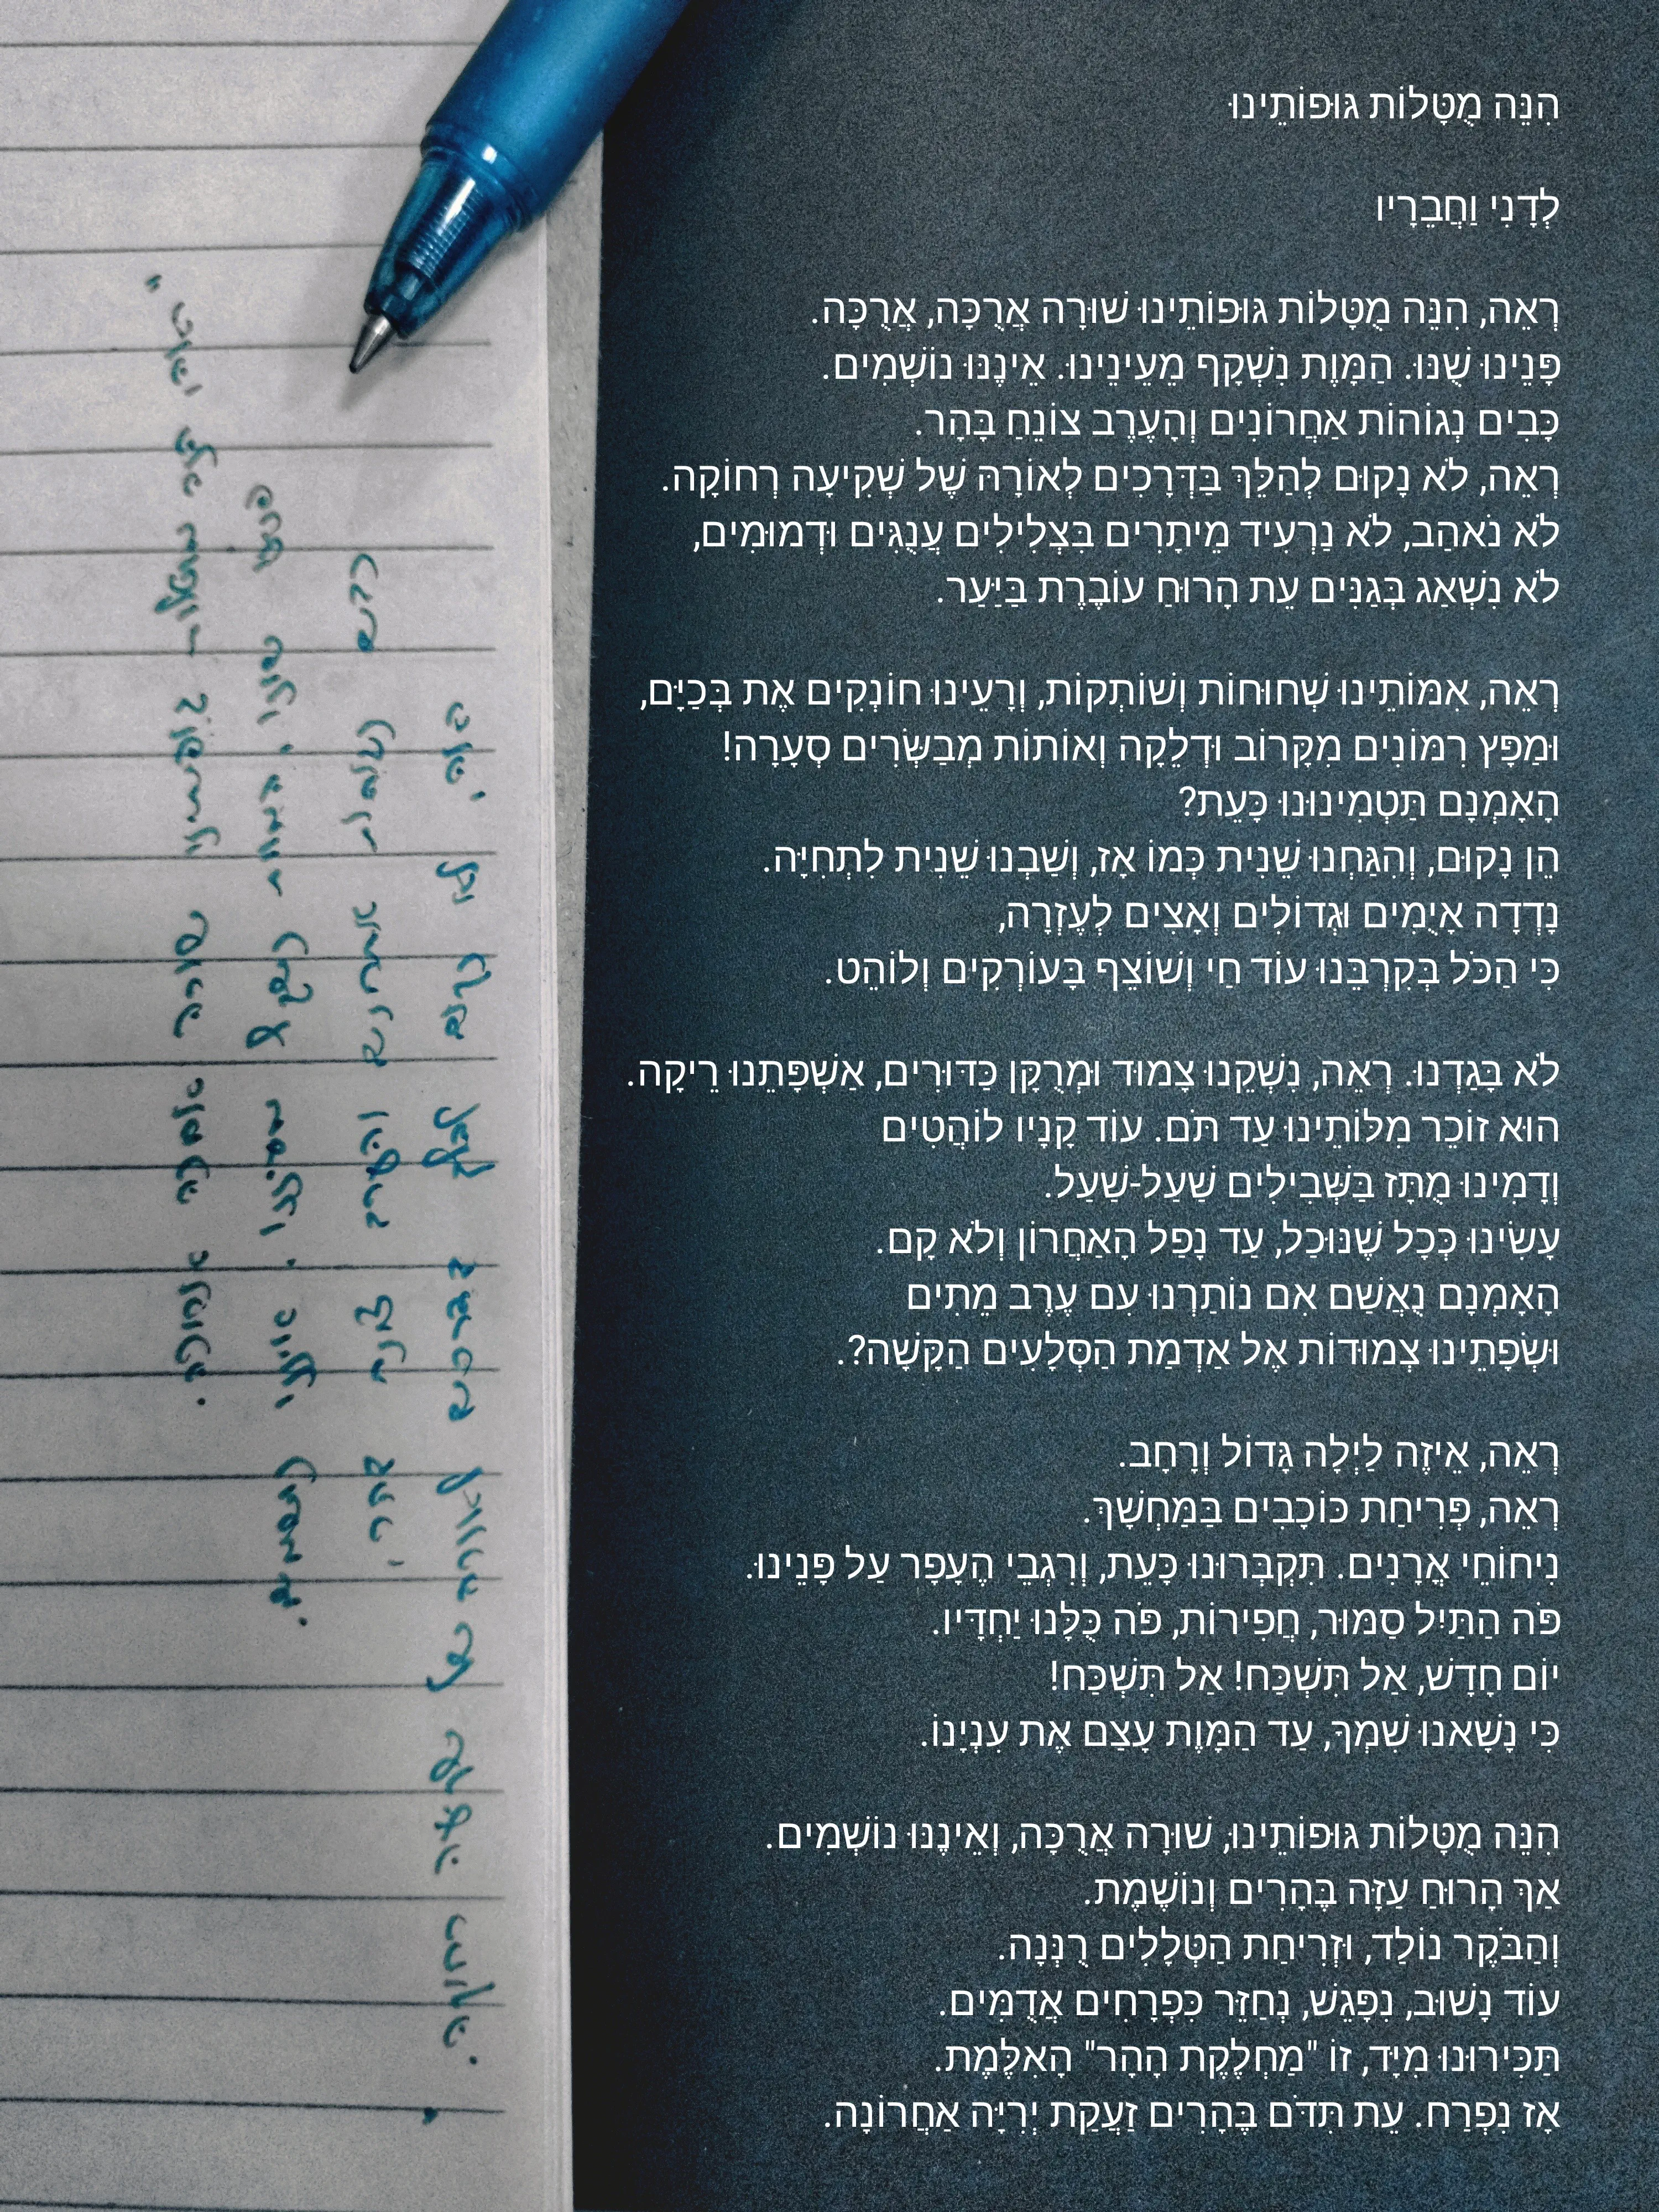 הִנֵּה מֻטָּלוֹת גּוּפוֹתֵינוּ
לְדָנִי וַחֲבֵרָיו
רְאֵה, הִנֵּה מֻטָּלוֹת גּוּפוֹתֵינוּ שׁוּרָה אֲרֻכָּה, אֲרֻכָּה.
פָּנֵינוּ שֻׁנּוּ. הַמָּוֶת נִשְׁקָף מֵעֵינֵינוּ. אֵינֶנּוּ נוֹשְׁמִים.
כָּבִים נְגוֹהוֹת אַחֲרוֹנִים וְהָעֶרֶב צוֹנֵחַ בָּהָר.
רְאֵה, לֹא נָקוּם לְהַלֵּךְ בַּדְּרָכִים לְאוֹרָהּ שֶׁל שְׁקִיעָה רְחוֹקָה.
לֹא נֹאהַב, לֹא נַרְעִיד מֵיתָרִים בִּצְלִילִים עֲנֻגִּים וּדְמוּמִים,
לֹא נִשְׁאַג בְּגַנִּים עֵת הָרוּחַ עוֹבֶרֶת בַּיַּעַר.
רְאֵה, אִמּוֹתֵינוּ שְׁחוּחוֹת וְשׁוֹתְקוֹת, וְרָעֵינוּ חוֹנְקִים אֶת בְּכַיָּם,
וּמַפַּץ רִמּוֹנִים מִקָּרוֹב וּדְלֵקָה וְאוֹתוֹת מְבַשְּׂרִים סְעָרָה!
הַאָמְנָם תַּטְמִינוּנוּ כָּעֵת?
הֵן נָקוּם, וְהִגַּחְנוּ שֵׁנִית כְּמוֹ אָז, וְשַׁבְנוּ שֵׁנִית לִתְחִיָּה.
נְדַדֶּה אֲיֻמִּים וּגְדוֹלִים וְאָצִים לְעֶזְרָה,
כִּי הַכֹּל בְּקִרְבֵּנוּ עוֹד חַי וְשׁוֹצֵף בָּעוֹרְקִים וְלוֹהֵט.
לֹא בָּגַדְנוּ. רְאֵה, נִשְׁקֵנוּ צָמוּד וּמְרֻקָּן כַּדּוּרִים, אַשְׁפָּתֵנוּ רֵיקָה.
הוּא זוֹכֵר מִלּוֹתֵינוּ עַד תֹּם. עוֹד קָנָיו לוֹהֲטִים
וְדָמֵינוּ מֻתָּז בַּשְּׁבִילִים שַׁעַל-שַׁעַל.
עָשִׂינוּ כְּכָל שֶׁנּוּכַל, עַד נָפַל הָאַחֲרוֹן וְלֹא קָם.
הַאָמְנָם נֶאֱשַׁם אִם נוֹתַרְנוּ עִם עֶרֶב מֵתִים
וּשְׂפָתֵינוּ צְמוּדוֹת אֶל אַדְמַת הַסְּלָעִים הַקָּשָׁה?.
רְאֵה, אֵיזֶה לַיְלָה גָּדוֹל וְרָחָב.
רְאֵה, פְּרִיחַת כּוֹכָבִים בַּמַּחְשָׁךְ.
נִיחוֹחֵי אֳרָנִים. תִּקְבְּרוּנוּ כָּעֵת, וְרִגְבֵי הֶעָפָר עַל פָּנֵינוּ.
פֹּה הַתַּיִל סַמּוּר, חֲפִירוֹת, פֹּה כֻּלָּנוּ יַחְדָּיו.
יוֹם חָדָשׁ, אַל תִּשְׁכַּח! אַל תִּשְׁכַּח!
כִּי נָשָׂאנוּ שִׁמְךָ, עַד הַמָּוֶת עָצַם אֶת עֵינֵינוּ.
הִנֵּה מֻטָּלוֹת גּוּפוֹתֵינוּ, שׁוּרָה אֲרֻכָּה, וְאֵינֶנּוּ נוֹשְׁמִים.
אַךְ הָרוּחַ עַזָּה בֶּהָרִים וְנוֹשֶׁמֶת.
וְהַבֹּקֶר נוֹלַד, וּזְרִיחַת הַטְּלָלִים רֻנְּנָה.
עוֹד נָשׁוּב, נִפָּגֵשׁ, נַחֲזֹר כִּפְרָחִים אֲדֻמִּים.
תַּכִּירוּנוּ מִיָּד, זוֹ "מַחְלֶקֶת הָהָר" הָאִלֶּמֶת.
אָז נִפְרַח. עֵת תִּדֹּם בֶּהָרִים זַעֲקַת יְרִיָּה אַחֲרוֹנָה.
"ראה הנה מוטלות גופותינו שורה ארוכה ארוכה.
פנינו שונו, המוות נשקף מעינינו. איננו נושמים.
כבים נגוהות אחרונים והערב צונח בהר,
ראה, לא נקום להלך בדרכים לאורה של שקיעה רחוקה.